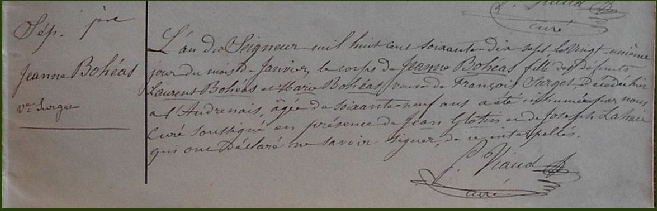 P. Viaud
curé
Sép. 
Jeanne Bohéas
vve Surget
L'an du Seigneur mil huit cent soixante-dix sept le vingt-unième
jour du mois de Janvier, le corps de Jeanne Bohéas fille des défunts
Laurent Bohéas et Marie Bohéas, veuve de François Surget, décédée hier
à l'Audrenais, âgée de soixante-neuf ans a été inhumée par nous
Curé soussigné en présence de Jean Glotin et de Joseph
qui ont déclaré ne savoir signer, de ce interpellés.
P. Viaud
curé